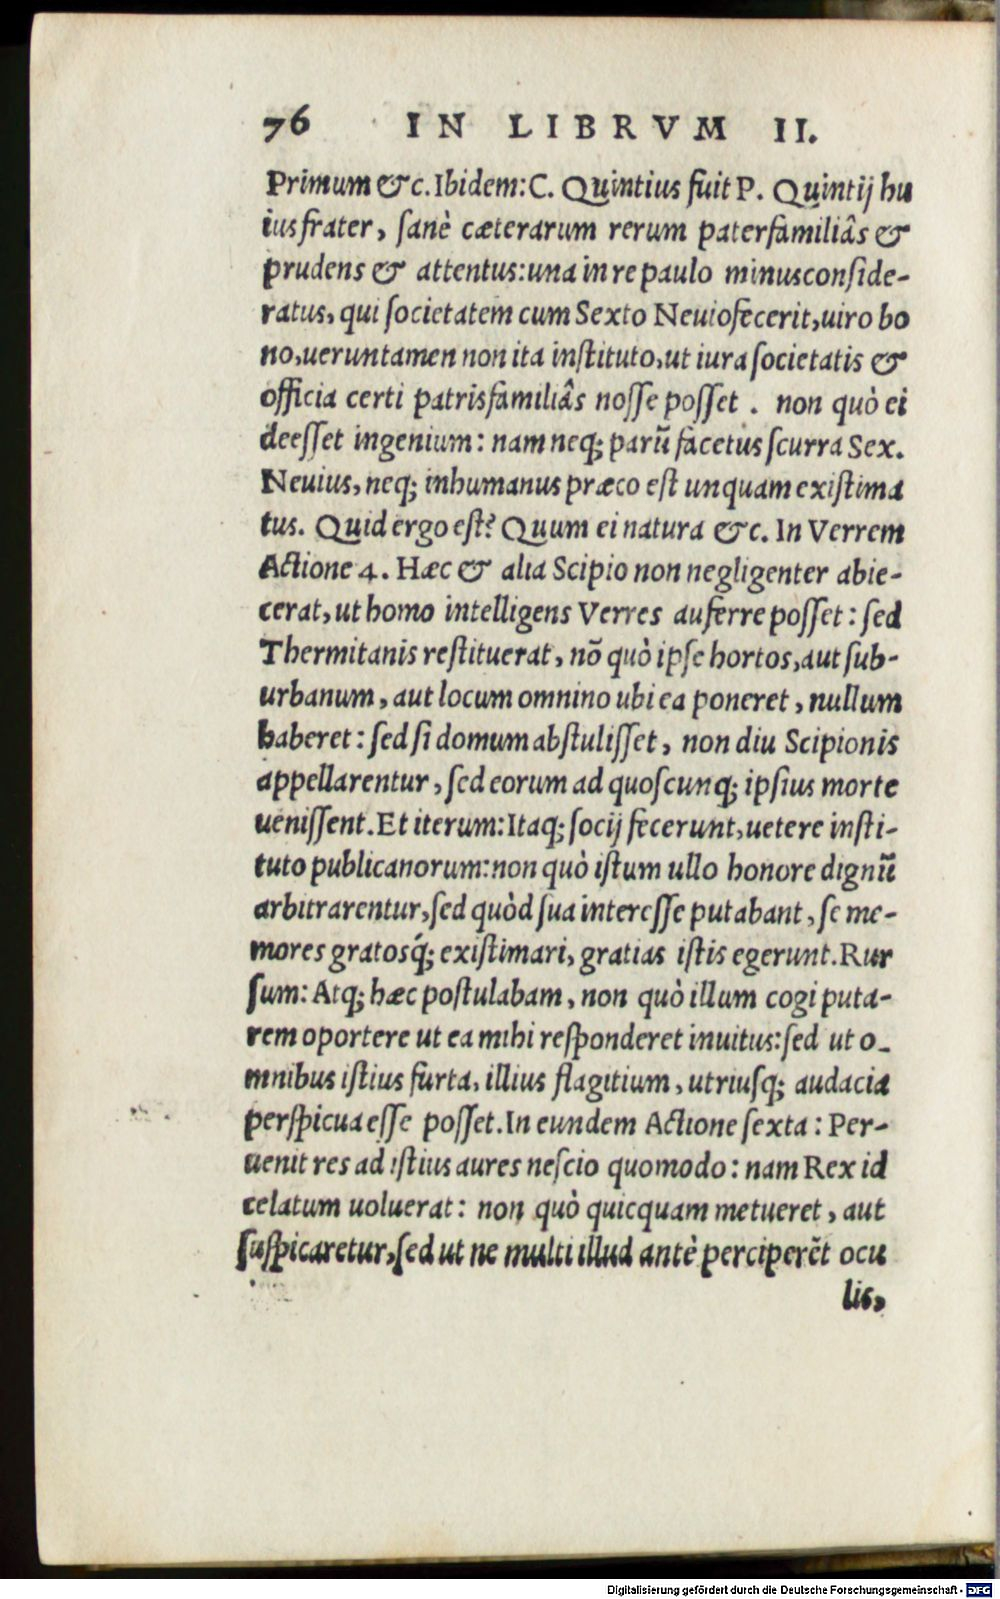 76 IN LIBRVM II.
Primum &c. Ibidem: C. Quintius fuit P. Quintij hu
ius frater, sanè cæterarum rerum paterfamiliâs &
prudens & attentus: una in re paulo minus conside-
ratus, qui societatem cum Sexto Neuio fecerit, uiro bo
no, ueruntamen non ita instituto, ut iura societatis &
officia certi patrisfamiliâs nosse posset. non quò ei
deesset ingenium: nam neq; parū facetus scurra Sex.
Neuius, neq; inhumanus præco est unquam existima
tus. Quid ergo est? Quum ei natura &c. In Verrem
Actione 4. Hæc & alia Scipio non negligenter abie-
cerat, ut homo intelligens Verres auferre posset: sed
Thermitanis restituerat, nō quò ipse hortos, aut sub-
urbanum, aut locum omnino ubi ea poneret, nullum
haberet: sed si domum abstulisset, non diu Scipionis
appellarentur, sed eorum ad quoscunq; ipsius morte
uenissent. Et iterum: Itaq; socij fecerunt, uetere insti-
tuto publicanorum: non quò istum ullo honore dignū
arbitrarentur, sed quòd sua interesse putabant, se me-
mores gratosq́; existimari, gratias istis egerunt. Rur
sum: Atq; hæc postulabam, non quò illum cogi puta-
rem oportere ut ea mihi responderet inuitus: sed ut o-
mnibus istius furta, illius flagitium, utriusq; audacia
perspicua esse posset. In eundem Actione sexta: Per-
uenit res ad istius aures nescio quomodo: nam Rex id
celatum uoluerat: non quò quicquam metueret, aut
suspicaretur, sed ut ne multi illud antè perciperēt ocu
lis,
Digitalisierung gefördert durch die Deutsche Forschungsgemeinschaft - DFG